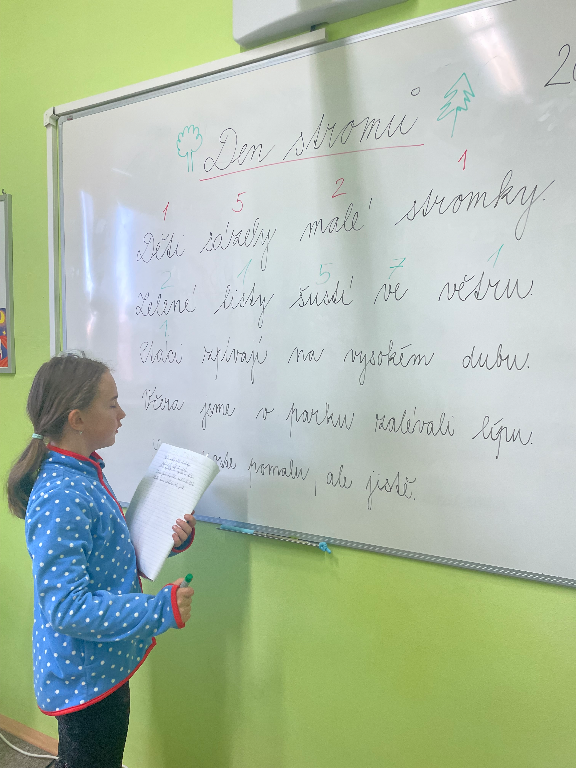 20
Den stromů
1 5 2 1
Děti sázely malé stromky.
2 1 5 7 1
Zelené listy šustí ve větru.
1
Ptáci zpívají na vysokém dubu.
Včera jsme v parku zalévali lípu.
pomalu, ale jistě.